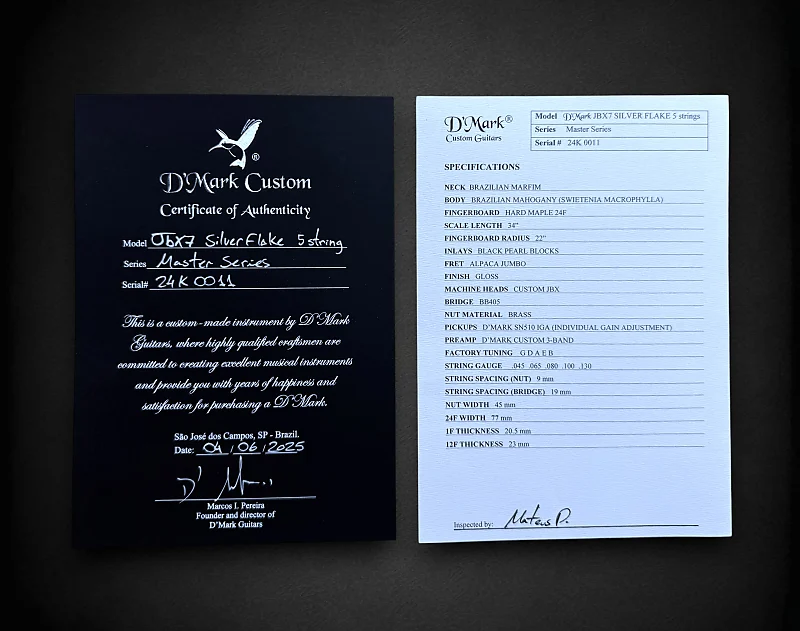 ®
D'Mark Custom
Certificate of Authenticity
Model JBX7 SilverFlake 5 string
Series Master Series
Serial# 24K 0011
This is a custom-made instrument by D'Mark
Guitars, where highly qualified craftsmen are
committed to creating excellent musical instruments
and provide you with years of happiness and
satisfaction for purchasing a D'Mark.
São José dos Campos, SP - Brazil.
Date: 04 / 06 / 2025
D' M...
Marcos I. Pereira
Founder and director of
D'Mark Guitars
D'Mark®
Custom Guitars
Model D'Mark JBX7 SILVER FLAKE 5 strings
Series Master Series
Serial # 24K 0011
SPECIFICATIONS
NECK BRAZILIAN MARFIM
BODY BRAZILIAN MAHOGANY (SWIETENIA MACROPHYLLA)
FINGERBOARD HARD MAPLE 24F
SCALE LENGTH 34"
FINGERBOARD RADIUS 22"
INLAYS BLACK PEARL BLOCKS
FRET ALPACA JUMBO
FINISH GLOSS
MACHINE HEADS CUSTOM JBX
BRIDGE BB405
NUT MATERIAL BRASS
PICKUPS D'MARK SN510 IGA (INDIVIDUAL GAIN ADJUSTMENT)
PREAMP D'MARK CUSTOM 3-BAND
FACTORY TUNING G D A E B
STRING GAUGE .045 .065 .080 .100 .130
STRING SPACING (NUT) 9 mm
STRING SPACING (BRIDGE) 19 mm
NUT WIDTH 45 mm
24F WIDTH 77 mm
1F THICKNESS 20.5 mm
12F THICKNESS 23 mm
Inspected by: Mateus P.